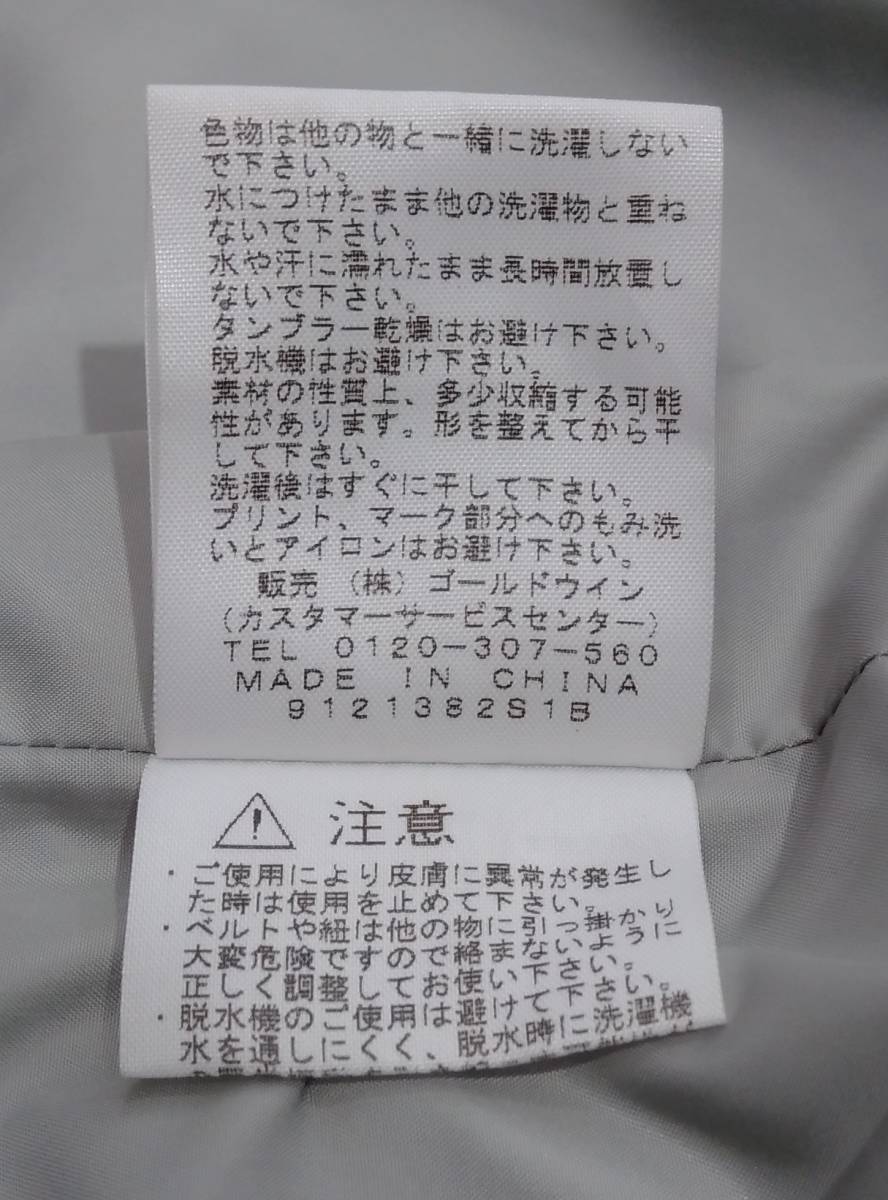 色物は他の物と一緒に洗濯しない
で下さい。
水につけたまま他の洗濯物と重ね
ないで下さい。
水や汗に濡れたまま長時間放置し
ないで下さい。
タンブラー乾燥はお避け下さい。
脱水機はお避け下さい。
素材の性質上、多少収縮する可能
性があります。形を整えてから干
して下さい。
洗濯後はすぐに干して下さい。
プリント、マーク部分へのもみ洗
いとアイロンはお避け下さい。
販売 (株) ゴールドウイン
(カスタマーサービスセンター)
TEL 0120-307-560
MADE IN CHINA
9121382S1B
注意
・ご使用により皮膚に異常が発生し
た時は使用を止めて下さい。
・ベルトや紐は他の物に引っ掛かりに
大変危険ですので絡まないように
正しく調整してお使い下さい。
・脱水機のご使用は避けて下さい。
水を通しにくく、脱水時に洗濯機